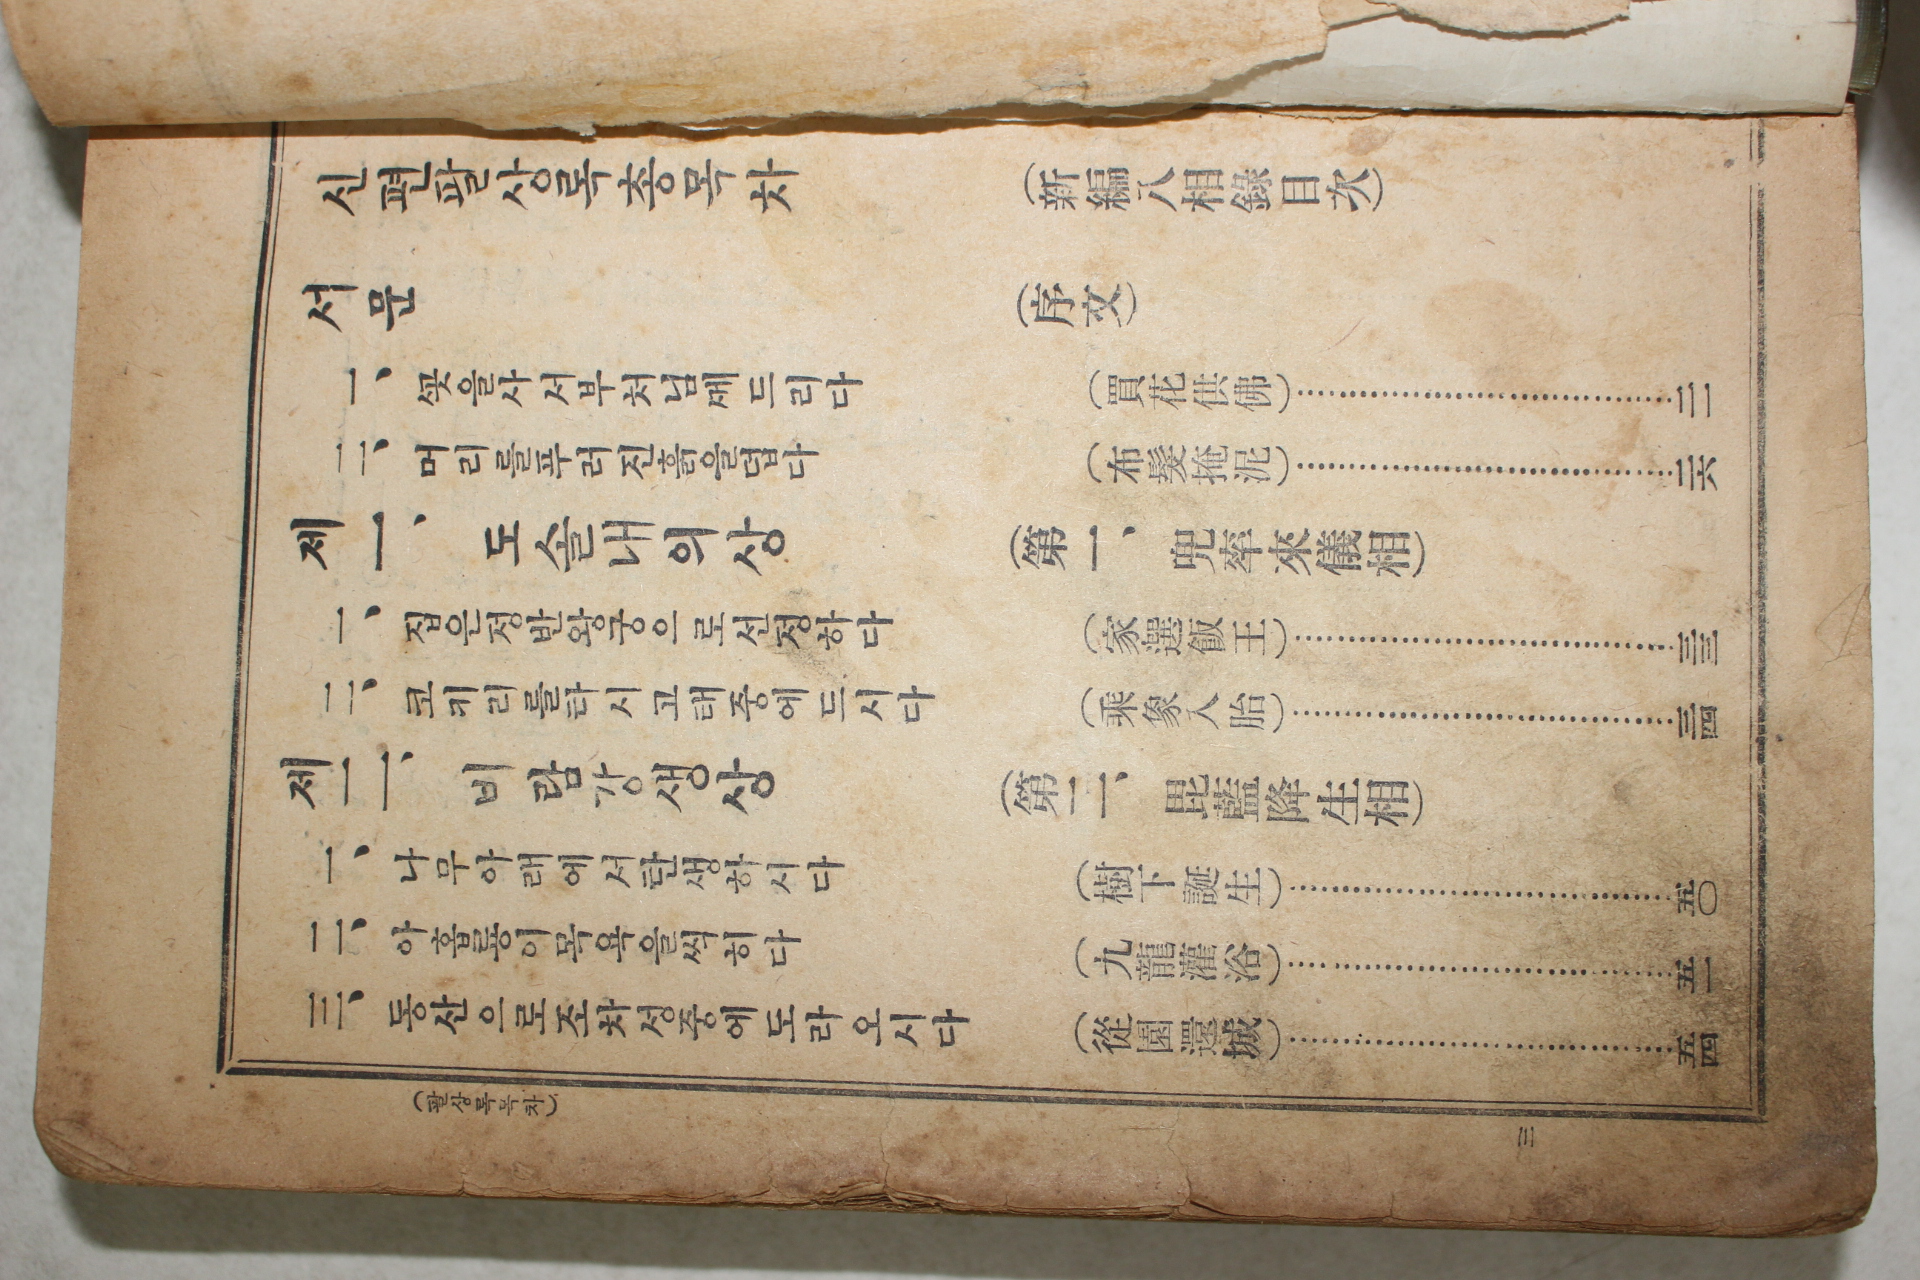 신편팔상록총목차 (新編八相錄目次)
서문 (序文)
一、꼿을사서부처님께드리다 (買花供佛)…………二一
二、머리를푸러진흙을덥다 (布髮掩泥)…………二六
제一、도솔내의상 (第一、兜率來儀相)
一、집은정반왕궁으로선정하다 (家選飯王)…………三三
二、코키리를타시고태중에드시다 (乘象入胎)…………三四
제二、비람강생상 (第二、毘藍降生相)
一、나무아래에서탄생하시다 (樹下誕生)…………五〇
二、아홉룡이목욕을씩히다 (九龍灌浴)…………五一
三、동산으로조차성중에도라오시다 (從園還城)…………五四
(팔상록목차) 三